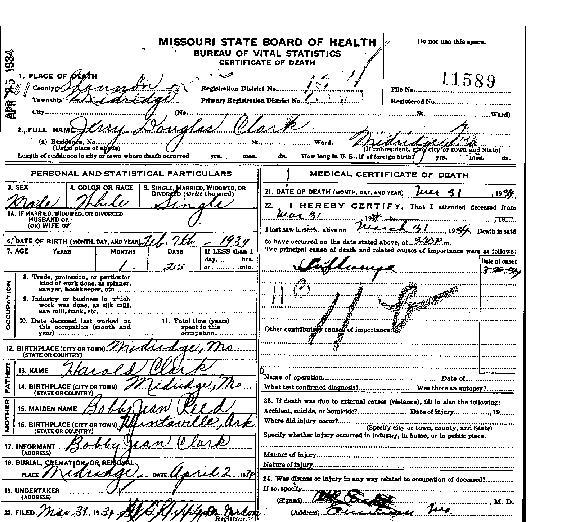 MISSOURI STATE BOARD OF HEALTH
BUREAU OF VITAL STATISTICS
CERTIFICATE OF DEATH
Do not use this space.
APR 25 1934
1. PLACE OF DEATH
County Registration District No. File No. 11589
Township Primary Registration District No. Registered No.
City (No. St. Ward)
2. FULL NAME Jerry Douglas Clark
(a) Residence, No. St. Ward.
(Usual place of abode) (If nonresident, give city or town and State)
Length of residence in city or town where death occurred yrs. mos. ds. How long in U. S., if of foreign birth? yrs. mos. ds.
PERSONAL AND STATISTICAL PARTICULARS
3. SEX 4. COLOR OR RACE 5. SINGLE, MARRIED, WIDOWED, OR DIVORCED (write the word)
Male White Single
5A. IF MARRIED, WIDOWED, OR DIVORCED
HUSBAND OF
(OR) WIFE OF
6. DATE OF BIRTH (MONTH, DAY, AND YEAR) Feb. 7th - 1934
7. AGE YEARS MONTHS DAYS If LESS than 1
day, hrs.
or min.
1
OCCUPATION
8. Trade, profession, or particular
kind of work done, as spinner,
sawyer, bookkeeper, etc.
9. Industry or business in which
work was done, as silk mill,
saw mill, bank, etc.
10. Date deceased last worked at
this occupation (month and
year)
11. Total time (years)
spent in this
occupation
12. BIRTHPLACE (CITY OR TOWN) Mo.
(STATE OR COUNTRY)
FATHER
13. NAME Harold Clark
14. BIRTHPLACE (CITY OR TOWN) Mo.
(STATE OR COUNTRY)
MOTHER
15. MAIDEN NAME Bobby Jean Reed
16. BIRTHPLACE (CITY OR TOWN) Huntsville, Ark
(STATE OR COUNTRY)
17. INFORMANT Bobby Jean Clark
(ADDRESS)
18. BURIAL, CREMATION, OR REMOVAL
PLACE DATE April 2
19. UNDERTAKER
(ADDRESS)
20. FILED Mar 31, 1934
Registrar.
MEDICAL CERTIFICATE OF DEATH
21. DATE OF DEATH (MONTH, DAY, AND YEAR) Mar 31 1934
22. I HEREBY CERTIFY, That I attended deceased from
Mar 31
I last saw alive on March 31 1934. Death is said
to have occurred on the date stated above, at m.
The principal cause of death and related causes of importance were as follows:
Date of onset
Other contributory causes of importance:
Name of operation Date of
What test confirmed diagnosis? Was there an autopsy?
23. If death was due to external causes (violence), fill in also the following:
Accident, suicide, or homicide? Date of injury , 19
Where did injury occur?
(Specify city or town, county, and State)
Specify whether injury occurred in industry, in home, or in public place.
Manner of injury
Nature of injury
24. Was disease or injury in any way related to occupation of deceased?
If so, specify
(Signed) M. D.
(Address) Mo.